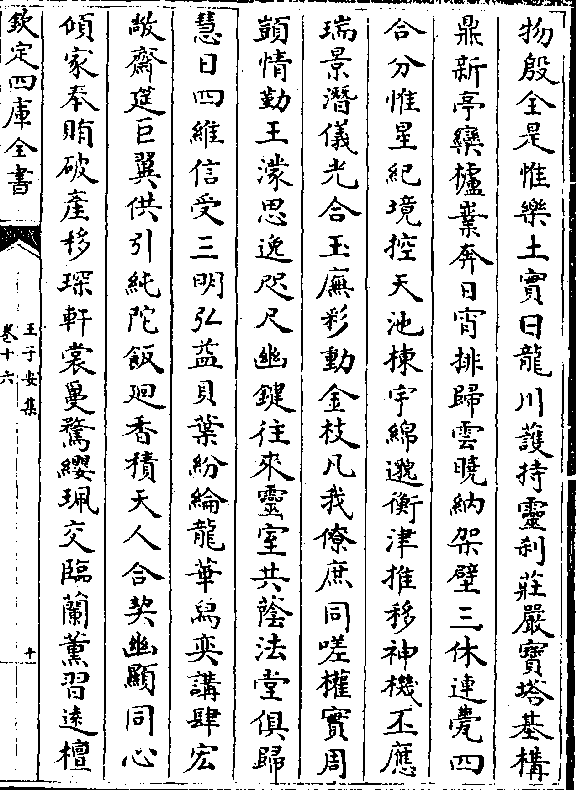 物殷全是惟樂土實曰龍川護持靈刹莊嚴寶塔基構
鼎新亭欒櫨叢奔日宵排歸雲曉納架壁三休連甍四
合分惟星紀境控天池棟宇綿邈衡津推移神機丕應
瑞景潛儀光合玉廡彩動金枝凡我僚庶同嗟權實周
顗情勤王濛思逸咫尺幽鍵往來靈室共蔭法堂俱歸
慧日四維信受三明弘益貝葉紛綸龍華舄奕講肆宏
敞齋筵巨翼供引純陀飯迴香積天人合契幽顯同心
傾家奉賄破産移琛軒裳曼騖纓珮交臨蘭薰習遠檀
欽定四庫全書
王子安集
卷十六
十